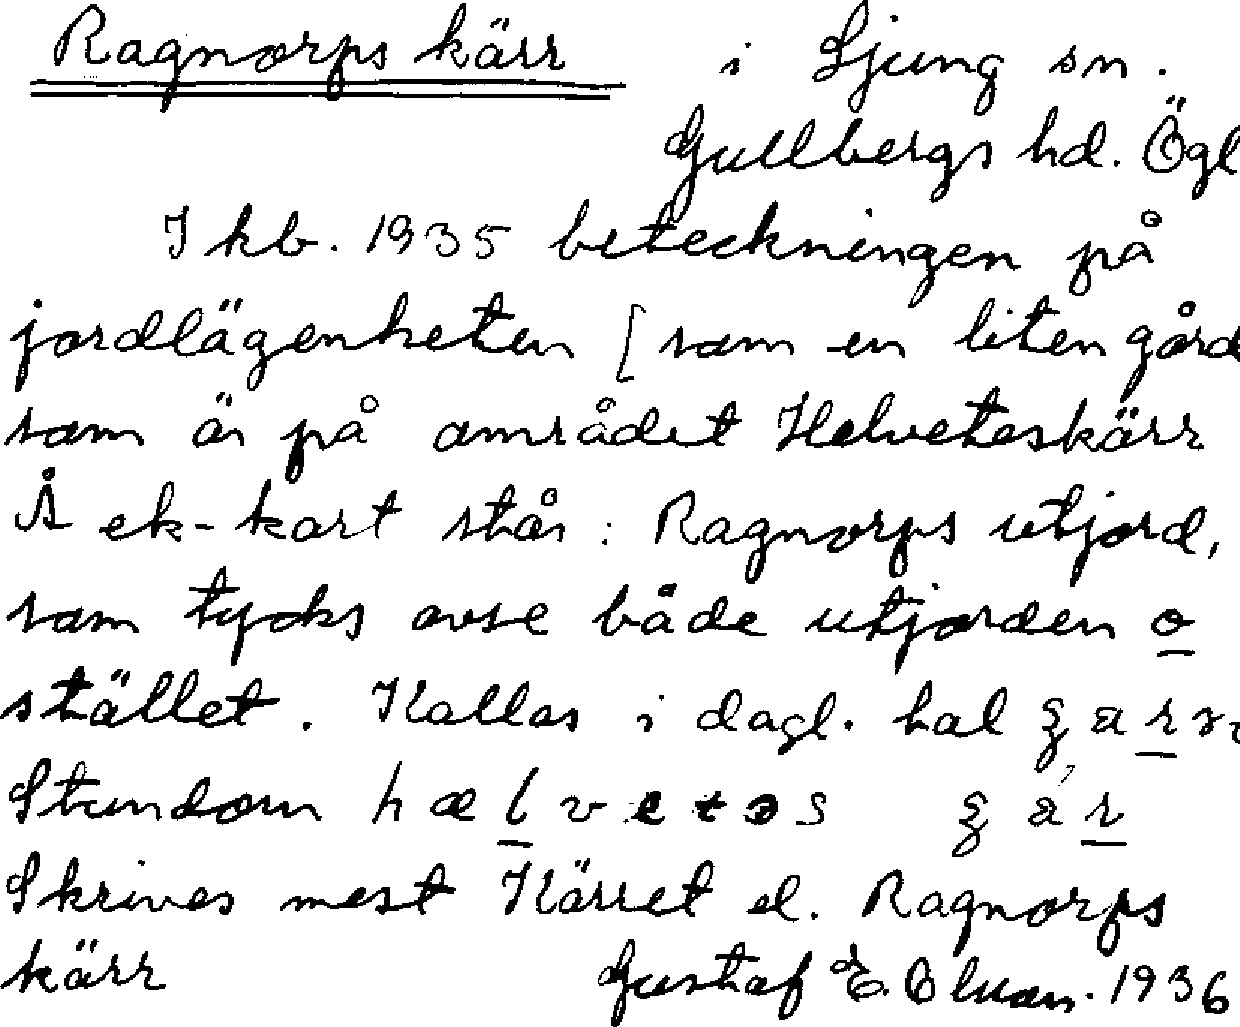 Ragnorps kärr i Ljung sn.
Gullbergs hd. Ögl
I kb. 1935 beteckningen på
jordlägenheten [som en liten gård
som är på området Helveteskärr
Å ek-kart står: Ragnorps utjord,
som tycks avse både utjorden o
stället. Kallas i dagl. tal
Stundom
Skrives mest Kärret el. Ragnorps
kärr Gustaf E. Olsson. 1936